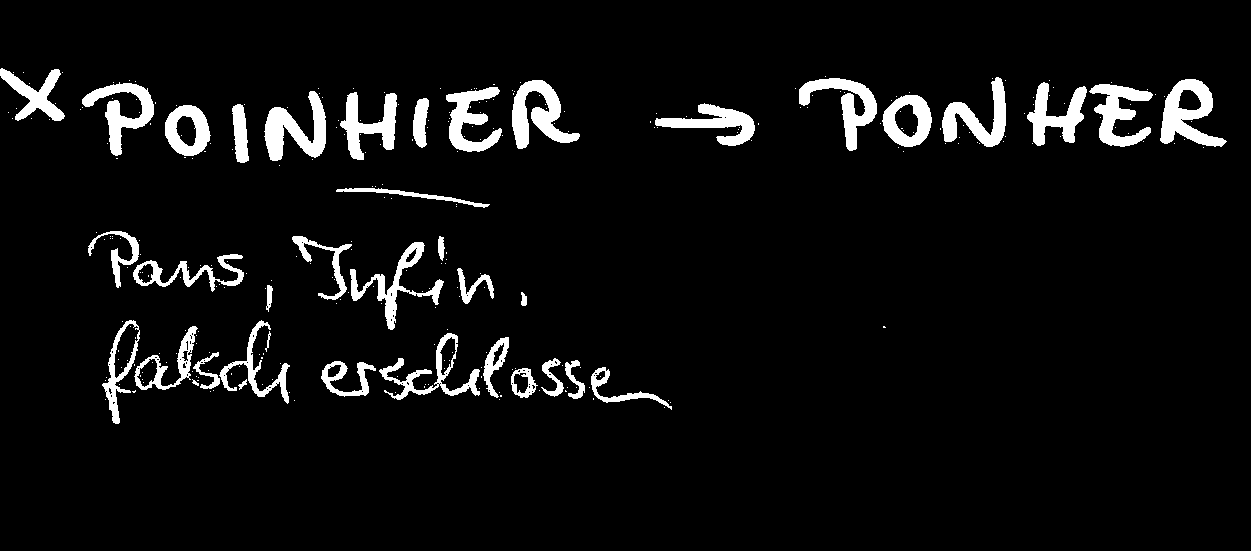 × POINHIER → PONHER
Pans, Infin.
falsch erschlossen